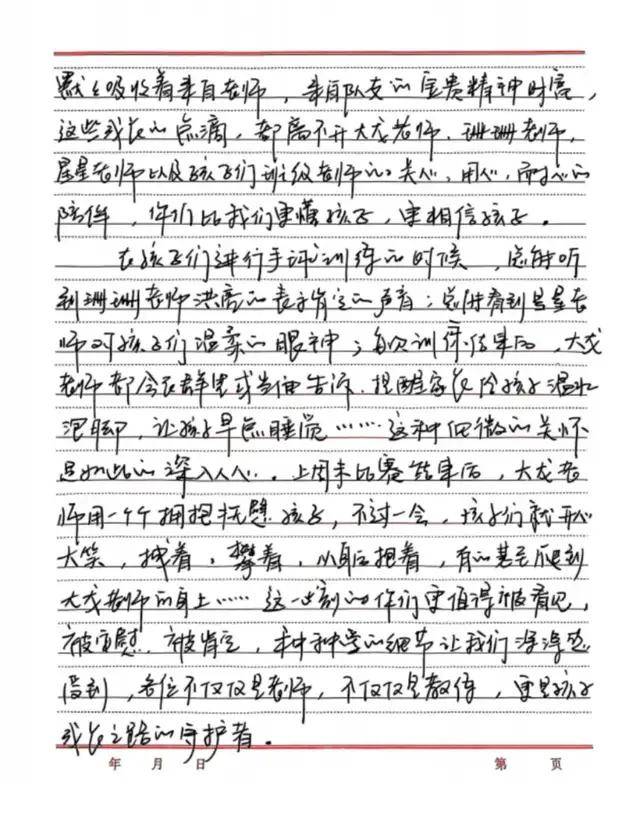 默默吸收着来自老师，来自队友的宝贵精神财富，
这些成长的点滴，都离不开大龙老师、珊珊老师、
星星老师以及孩子们班级老师的关心、用心、耐心的
陪伴，你们比我们更懂孩子，更相信孩子。
在孩子们进行手评训练的时候，总能听
到珊珊老师洪亮的表示肯定的声音；总能看到星星老
师对孩子们温柔的眼神；每次训练结束后，大龙
老师都会在群里或当面告诉、提醒家长给孩子温水
泡脚，让孩子早点睡觉……这种细微的关怀
是如此的深入人心。上周末比赛结束后，大龙老
师用一个个拥抱抚慰孩子，不过一会，孩子们就开心
大笑，拽着，攀着，从身后抱着，有的甚至爬到
大龙老师的身上……这一刻的你们更值得被看见，
被宽慰、被肯定，种种的细节让我们深深感
受到，各位不仅仅是老师，不仅仅是教练，更是孩子
成长之路的守护者。
年 月 日 第 页